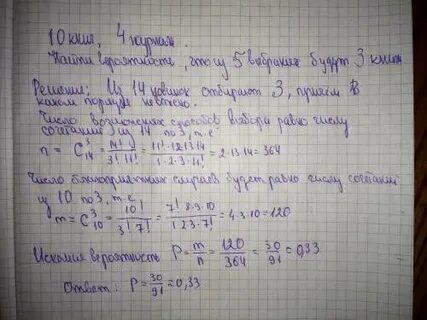 10 книг, 4 журнала.
Найти вероятность, что из 5 выбраных будут 3 книги
Решение: Из 14 новинок отбирают 3, причём в
каком порядке неважно.
Число возможных способов выбора равно числу
сочетаний из 14 по 3, т.е
n = C³₁₄ = 14!/(3! 11!) = 11!·12·13·14/(1·2·3·11!) = 2·13·14 = 364
Число благоприятных случаев будет равно числу сочетаний
из 10 по 3, т.е
m = C³₁₀ = 10!/(3! 7!) = 7! 8·9·10/(1·2·3·7!) = 4·3·10 = 120
Искомая вероятность P = m/n = 120/364 = 30/91 = 0,33
Ответ: P = 30/91 = 0,33